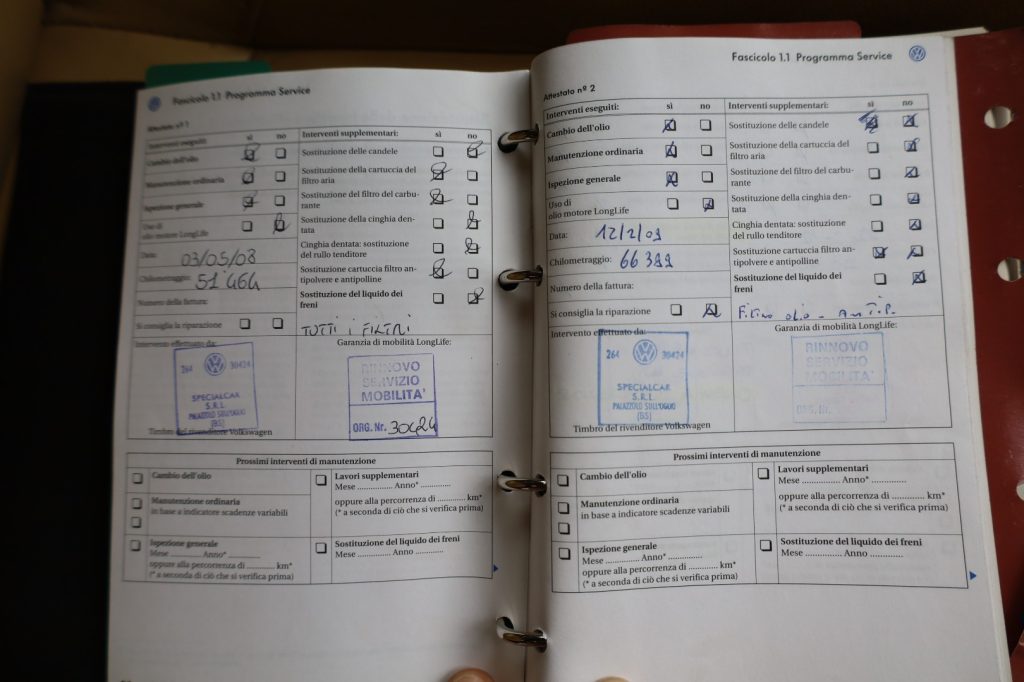 Fascicolo 1.1 Programma Service
Attestato nº 1
Interventi eseguiti: sì no
Cambio dell'olio
Manutenzione ordinaria
Ispezione generale
Uso di
olio motore LongLife
Data: 03/05/08
Chilometraggio: 51 464
Numero della fattura:
Si consiglia la riparazione
Interventi supplementari: sì no
Sostituzione delle candele
Sostituzione della cartuccia del
filtro aria
Sostituzione del filtro del carbu-
rante
Sostituzione della cinghia den-
tata
Cinghia dentata: sostituzione
del rullo tenditore
Sostituzione cartuccia filtro an-
tipolvere e antipolline
Sostituzione del liquido dei
freni
TUTTI I FILTRI
Intervento effettuato da:
264 30424
SPECIALCAR
S.R.L.
PALAZZOLO SULL'OGLIO
(BS)
Timbro del rivenditore Volkswagen
Garanzia di mobilità LongLife:
RINNOVO
SERVIZIO
MOBILITA'
ORG. Nr. 30424
Prossimi interventi di manutenzione
Cambio dell'olio
Manutenzione ordinaria
in base a indicatore scadenze variabili
Ispezione generale
Mese .............. Anno* ..............
oppure alla percorrenza di ............ km*
(* a seconda di ciò che si verifica prima)
Lavori supplementari
Mese .............. Anno* ..............
oppure alla percorrenza di ............ km*
(* a seconda di ciò che si verifica prima)
Sostituzione del liquido dei freni
Mese .............. Anno ..............
Fascicolo 1.1 Programma Service
Attestato nº 2
Interventi eseguiti: sì no
Cambio dell'olio
Manutenzione ordinaria
Ispezione generale
Uso di
olio motore LongLife
Data: 12/2/09
Chilometraggio:
Numero della fattura:
Si consiglia la riparazione
Interventi supplementari: sì no
Sostituzione delle candele
Sostituzione della cartuccia del
filtro aria
Sostituzione del filtro del carbu-
rante
Sostituzione della cinghia den-
tata
Cinghia dentata: sostituzione
del rullo tenditore
Sostituzione cartuccia filtro an-
tipolvere e antipolline
Sostituzione del liquido dei
freni
Filtro olio - AnTiP.
Intervento effettuato da:
264 30424
SPECIALCAR
S.R.L.
PALAZZOLO SULL'OGLIO
(BS)
Timbro del rivenditore Volkswagen
Garanzia di mobilità LongLife:
RINNOVO
SERVIZIO
MOBILITA'
ORG. Nr.
Prossimi interventi di manutenzione
Cambio dell'olio
Manutenzione ordinaria
in base a indicatore scadenze variabili
Ispezione generale
Mese .............. Anno* ..............
oppure alla percorrenza di ............ km*
(* a seconda di ciò che si verifica prima)
Lavori supplementari
Mese .............. Anno* ..............
oppure alla percorrenza di ............ km*
(* a seconda di ciò che si verifica prima)
Sostituzione del liquido dei freni
Mese .............. Anno ..............